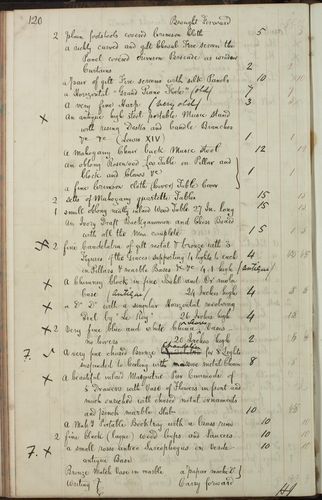 120 Brought Forward
2 plain footstools covered crimson cloth 5
a richly carved and gilt Cheval Fire screen the
Panel covered crimson Brocade as window
Curtains 2
a pair of gilt Fire screens with silk Panels 10
a Horizontal "Grand Piano Forte" (old) 7
A very fine Harp (very old) 3
x An antique high stool portable Music Stand
with rising Desks and Candle Branches
&c &c (Louis XIV) 1
A Mahogany Chair back Music stool 12
An oblong Rosewood Loo Table on Pillar and
block and Claws &c
a fine crimson cloth (cover) Table Cover 1
2 setts of Mahogany quartetto Tables 15
1 small oblong neatly inlaid Wood Table 27 In. long 15
An Ivory Draft Backgammon and Chess Board
with all the Men complete 15
x 2 fine Candelabra of gilt metal & bronze with 3
Figures of the Graces supporting 4 lights to each
on Pillars & marble Bases &c &c 4.1 high (antique) 4
x A chimney clock in fine Buhl and Or molu
Case (antique) 24 Inches high 4
x a Do Do with a singular Horizontal revolving
Dial by "Le Roy" 26 Inches high 4
x 2 very fine blue and white china Vases
no covers 26 Inches high 2
7. A very fine chased Bronze Chandelier for 8 Lights
suspended to Ceiling with metal Chain 8
x A beautiful inlaid Marquetrie
5 Drawers with Vase of Flowers in front and
much enriched with chased metal ornaments
and french marble Slab 10
A Mahy Portable Booktray with a brass rim 10
2 fine black (large) wood cups and Saucers 10
7. x a small rosso antico Sarcophagus on Verde
antique Base
Bronze Watch Case in marble a paper mache Do
Writing Carry forward